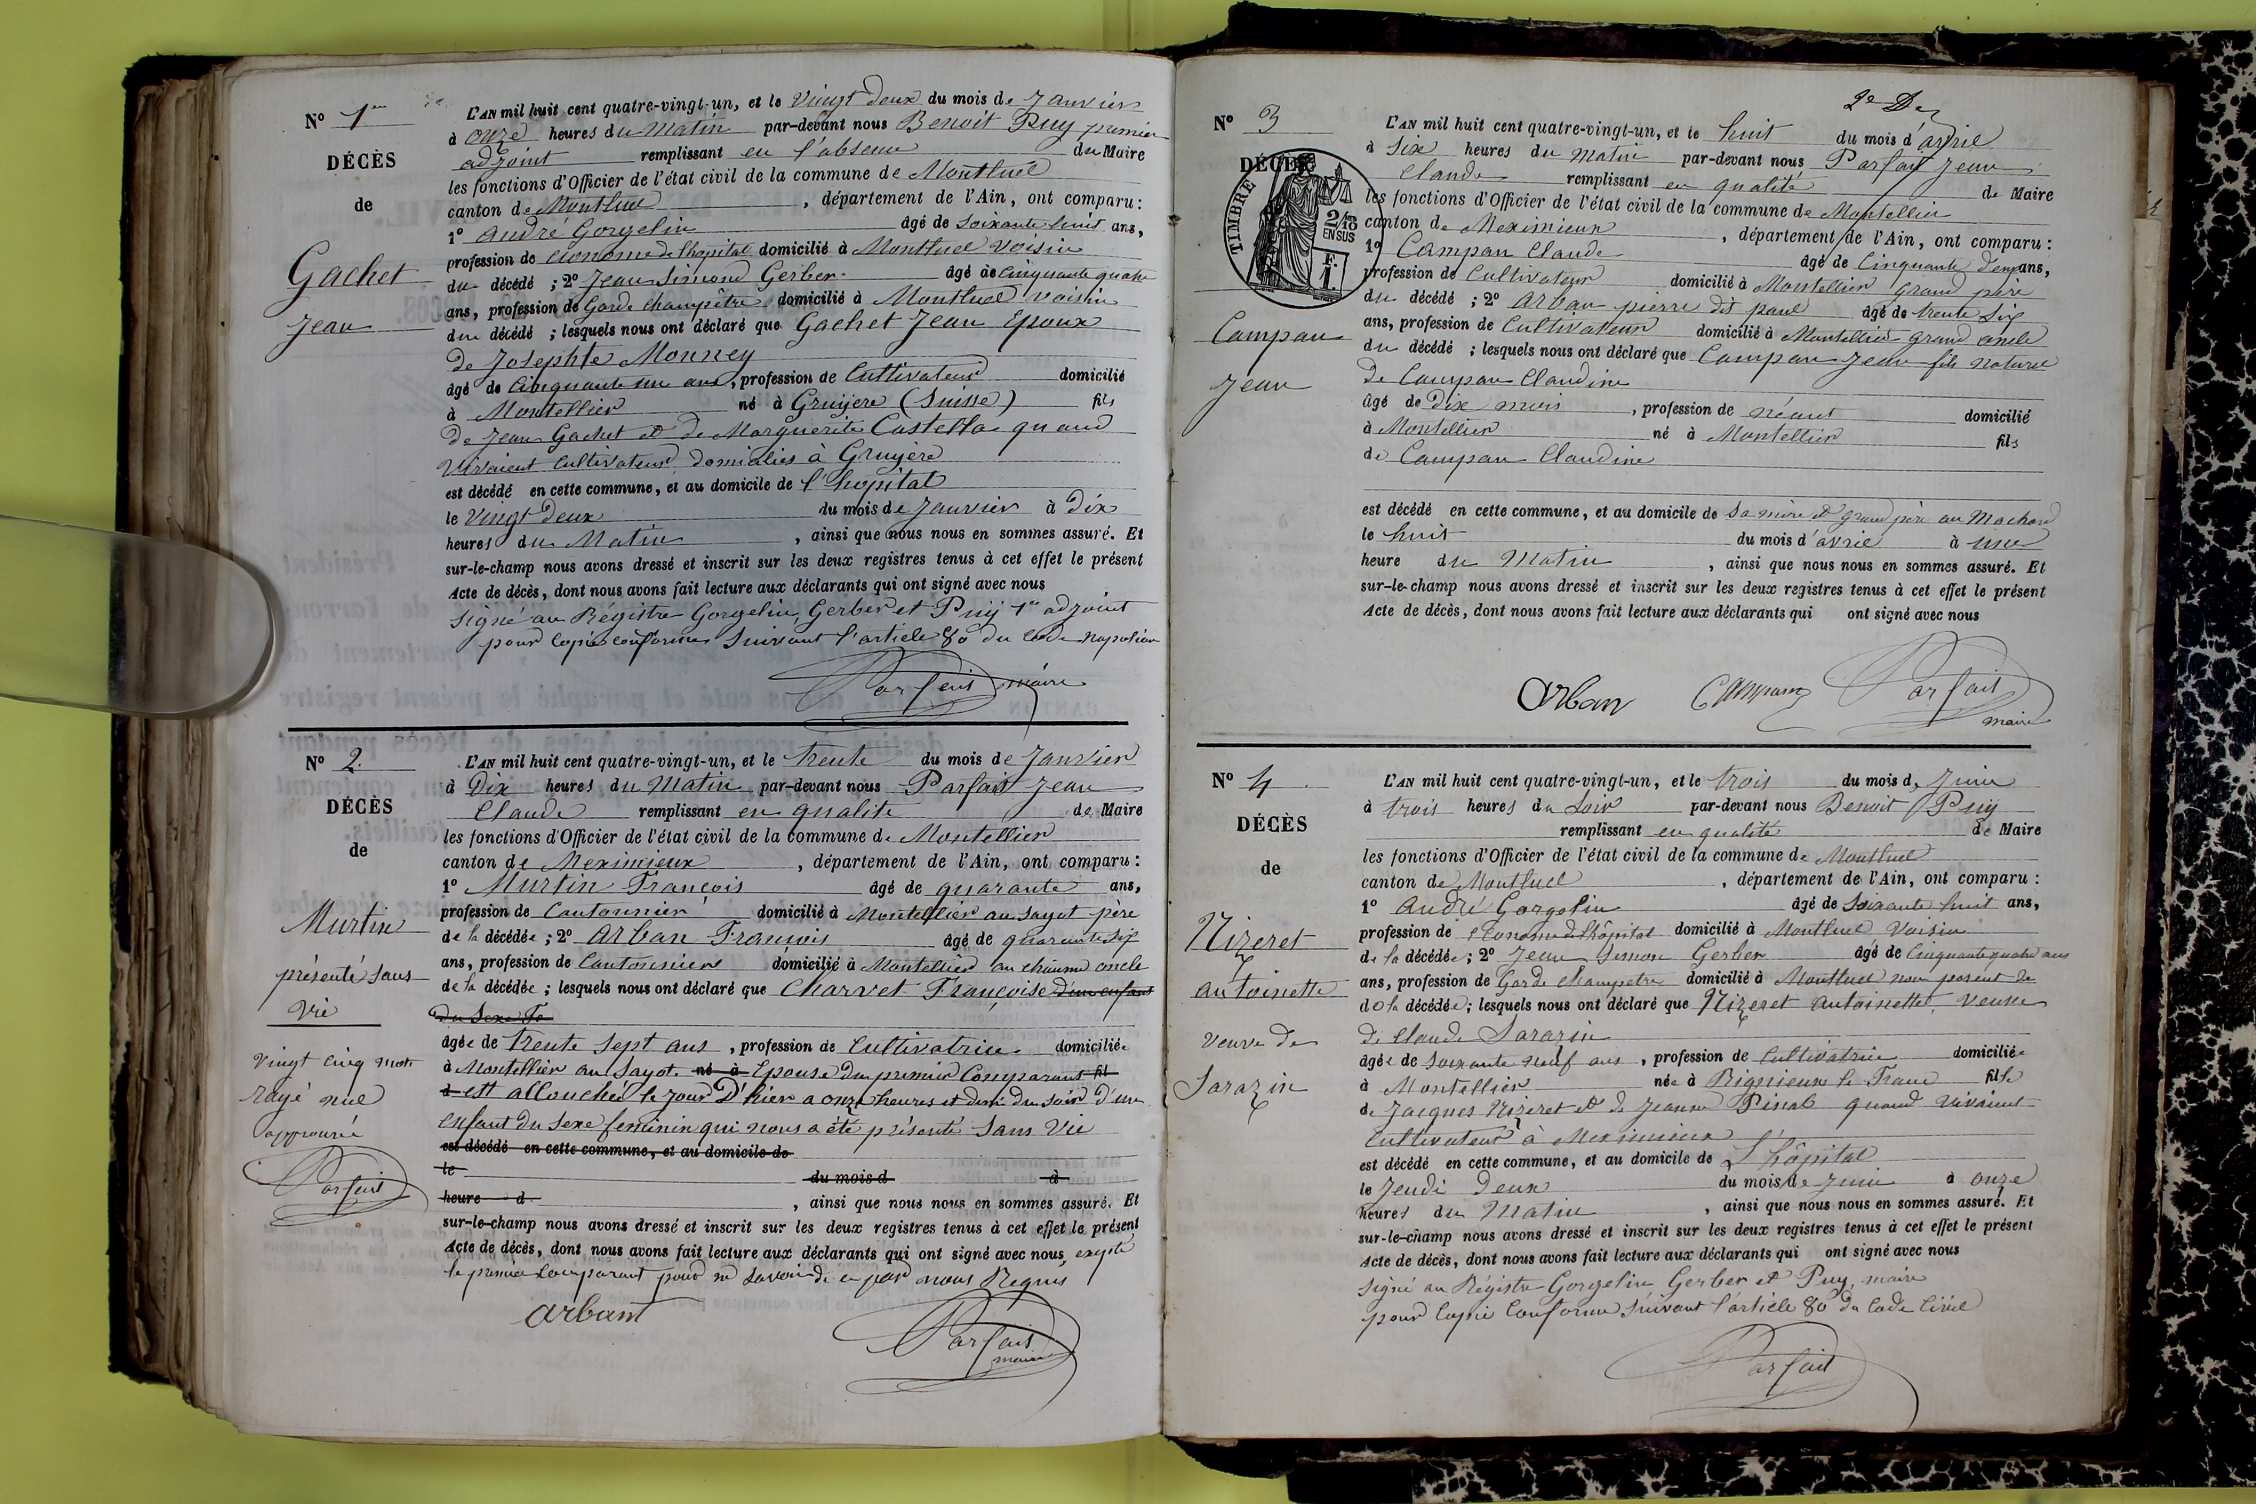 N° 1er
DÉCÈS
de
Gachet
Jean
L'AN mil huit cent quatre-vingt-un, et le Vingt deux du mois de Janvier
à onze heures du Matin par-devant nous Benoit Puy premier
adjoint remplissant en l'absence du Maire
les fonctions d'Officier de l'état civil de la commune de Montluel
canton de Montluel, département de l'Ain, ont comparu :
1° André Gorgelin âgé de Soixante huit ans,
profession de économe de l'hopital domicilié à Montluel voisin
du décédé ; 2° Jean Simond Gerber âgé de Cinquante quatre
ans, profession de Garde champêtre domicilié à Montluel voisin
du décédé ; lesquels nous ont déclaré que Gachet Jean Epoux
de Josephte Monney
âgé de Cinquante un ans, profession de Cultivateur domicilié
à Montellier né à Gruyère (Suisse) fils
de Jean Gachet et de Marguerite Castella quand
vivaient Cultivateurs domiciliés à Gruyère
est décédé en cette commune, et au domicile de l'hopital
le Vingt deux du mois de Janvier à Dix
heures du Matin, ainsi que nous nous en sommes assuré. Et
sur-le-champ nous avons dressé et inscrit sur les deux registres tenus à cet effet le présent
Acte de décès, dont nous avons fait lecture aux déclarants qui ont signé avec nous
Signé au Régistre Gorgelin, Gerber et Puy 1er adjoint
pour Copie conforme Suivant l'article 80 du Code Napoléon
Parfait maire
N° 2
DÉCÈS
de
Murtin
présenté Sans
Vie
Vingt cinq mots
rayé nul
approuvé
Parfait
L'AN mil huit cent quatre-vingt-un, et le trente du mois de Janvier
à Dix heures du Matin par-devant nous Parfait Jean
Claude remplissant en qualité de Maire
les fonctions d'Officier de l'état civil de la commune de Montellier
canton de Meximieux, département de l'Ain, ont comparu :
1° Murtin François âgé de quarante ans,
profession de Cantonnier domicilié à Montellier au Sayot père
de la décédée ; 2° Arban François âgé de quarante six
ans, profession de Cantonnier domicilié à Montellier au oncle
de la décédée ; lesquels nous ont déclaré que Charvet Françoise d'un enfant
du Sexe Fe
âgée de trente Sept ans, profession de Cultivatrice domiciliée
à Montellier au Sayot né à Epouse du premier Comparant fil
d est allouchée le jour D'hier a onze heures et demi du Soir D'un
enfant du Sexe feminin qui nous a été présenté Sans Vie
est décédé en cette commune, et au domicile de
le du mois d à
heure d, ainsi que nous nous en sommes assuré. Et
sur-le-champ nous avons dressé et inscrit sur les deux registres tenus à cet effet le présent
Acte de décès, dont nous avons fait lecture aux déclarants qui ont signé avec nous, exepté
le premier Comparant pour ne Savoir de ce par nous Requis
Arbant
Parfait
maire
2e De
N° 3
DÉCÈS
TIMBRE
2/10
EN SUS
F.
1.
Campan
Jean
L'AN mil huit cent quatre-vingt-un, et le huit du mois d'avril
à Six heures du matin par-devant nous Parfait Jean
Claude remplissant en qualité de Maire
les fonctions d'Officier de l'état civil de la commune de Montellier
canton de Meximieux, département de l'Ain, ont comparu :
1° Campan Claude âgé de Cinquante Deux ans,
profession de Cultivateur domicilié à Montellier Grand père
du décédé ; 2° Arban pierre dit paul âgé de trente Six
ans, profession de Cultivateur domicilié à Montellier Grand oncle
du décédé ; lesquels nous ont déclaré que Campan Jean fils naturel
de Campan Claudine
âgé de Dix mois, profession de néant domicilié
à Montellier né à Montellier fils
de Campan Claudine
est décédé en cette commune, et au domicile de Sa mère et grand père au Machard
le huit du mois d'avril à une
heure du Matin, ainsi que nous nous en sommes assuré. Et
sur-le-champ nous avons dressé et inscrit sur les deux registres tenus à cet effet le présent
Acte de décès, dont nous avons fait lecture aux déclarants qui ont signé avec nous
Arban Campan Parfait
maire
N° 4
DÉCÈS
de
Nizeret
Antoinette
veuve de
Sarazin
L'AN mil huit cent quatre-vingt-un, et le trois du mois de Juin
à trois heures du Soir par-devant nous Benoit Puy
remplissant en qualité de Maire
les fonctions d'Officier de l'état civil de la commune de Montluel
canton de Montluel, département de l'Ain, ont comparu :
1° André Gorgelin âgé de Soixante huit ans,
profession de économe de l'hôpital domicilié à Montluel Voisin
de la décédée ; 2° Jean Simon Gerber âgé de Cinquante quatre ans
ans, profession de Garde champetre domicilié à Montluel non parent de
de la décédée ; lesquels nous ont déclaré que Nizeret Antoinette, veuve
de Claude Sarazin
âgée de Soixante neuf ans, profession de Cultivatrice domiciliée
à Montellier née à Rignieux le Franc fille
de Jacques Nizeret et de Jeanne Pinal quand vivaient
Cultivateurs à Meximieux
est décédé en cette commune, et au domicile de L'hôpital
le Jeudi Deux du mois de Juin à onze
heures du Matin, ainsi que nous nous en sommes assuré. Et
sur-le-champ nous avons dressé et inscrit sur les deux registres tenus à cet effet le présent
Acte de décès, dont nous avons fait lecture aux déclarants qui ont signé avec nous
Signé au Régistre Gorgelin Gerber et Puy, maire
pour Copie Conforme Suivant l'article 80 du Code Civil
Parfait